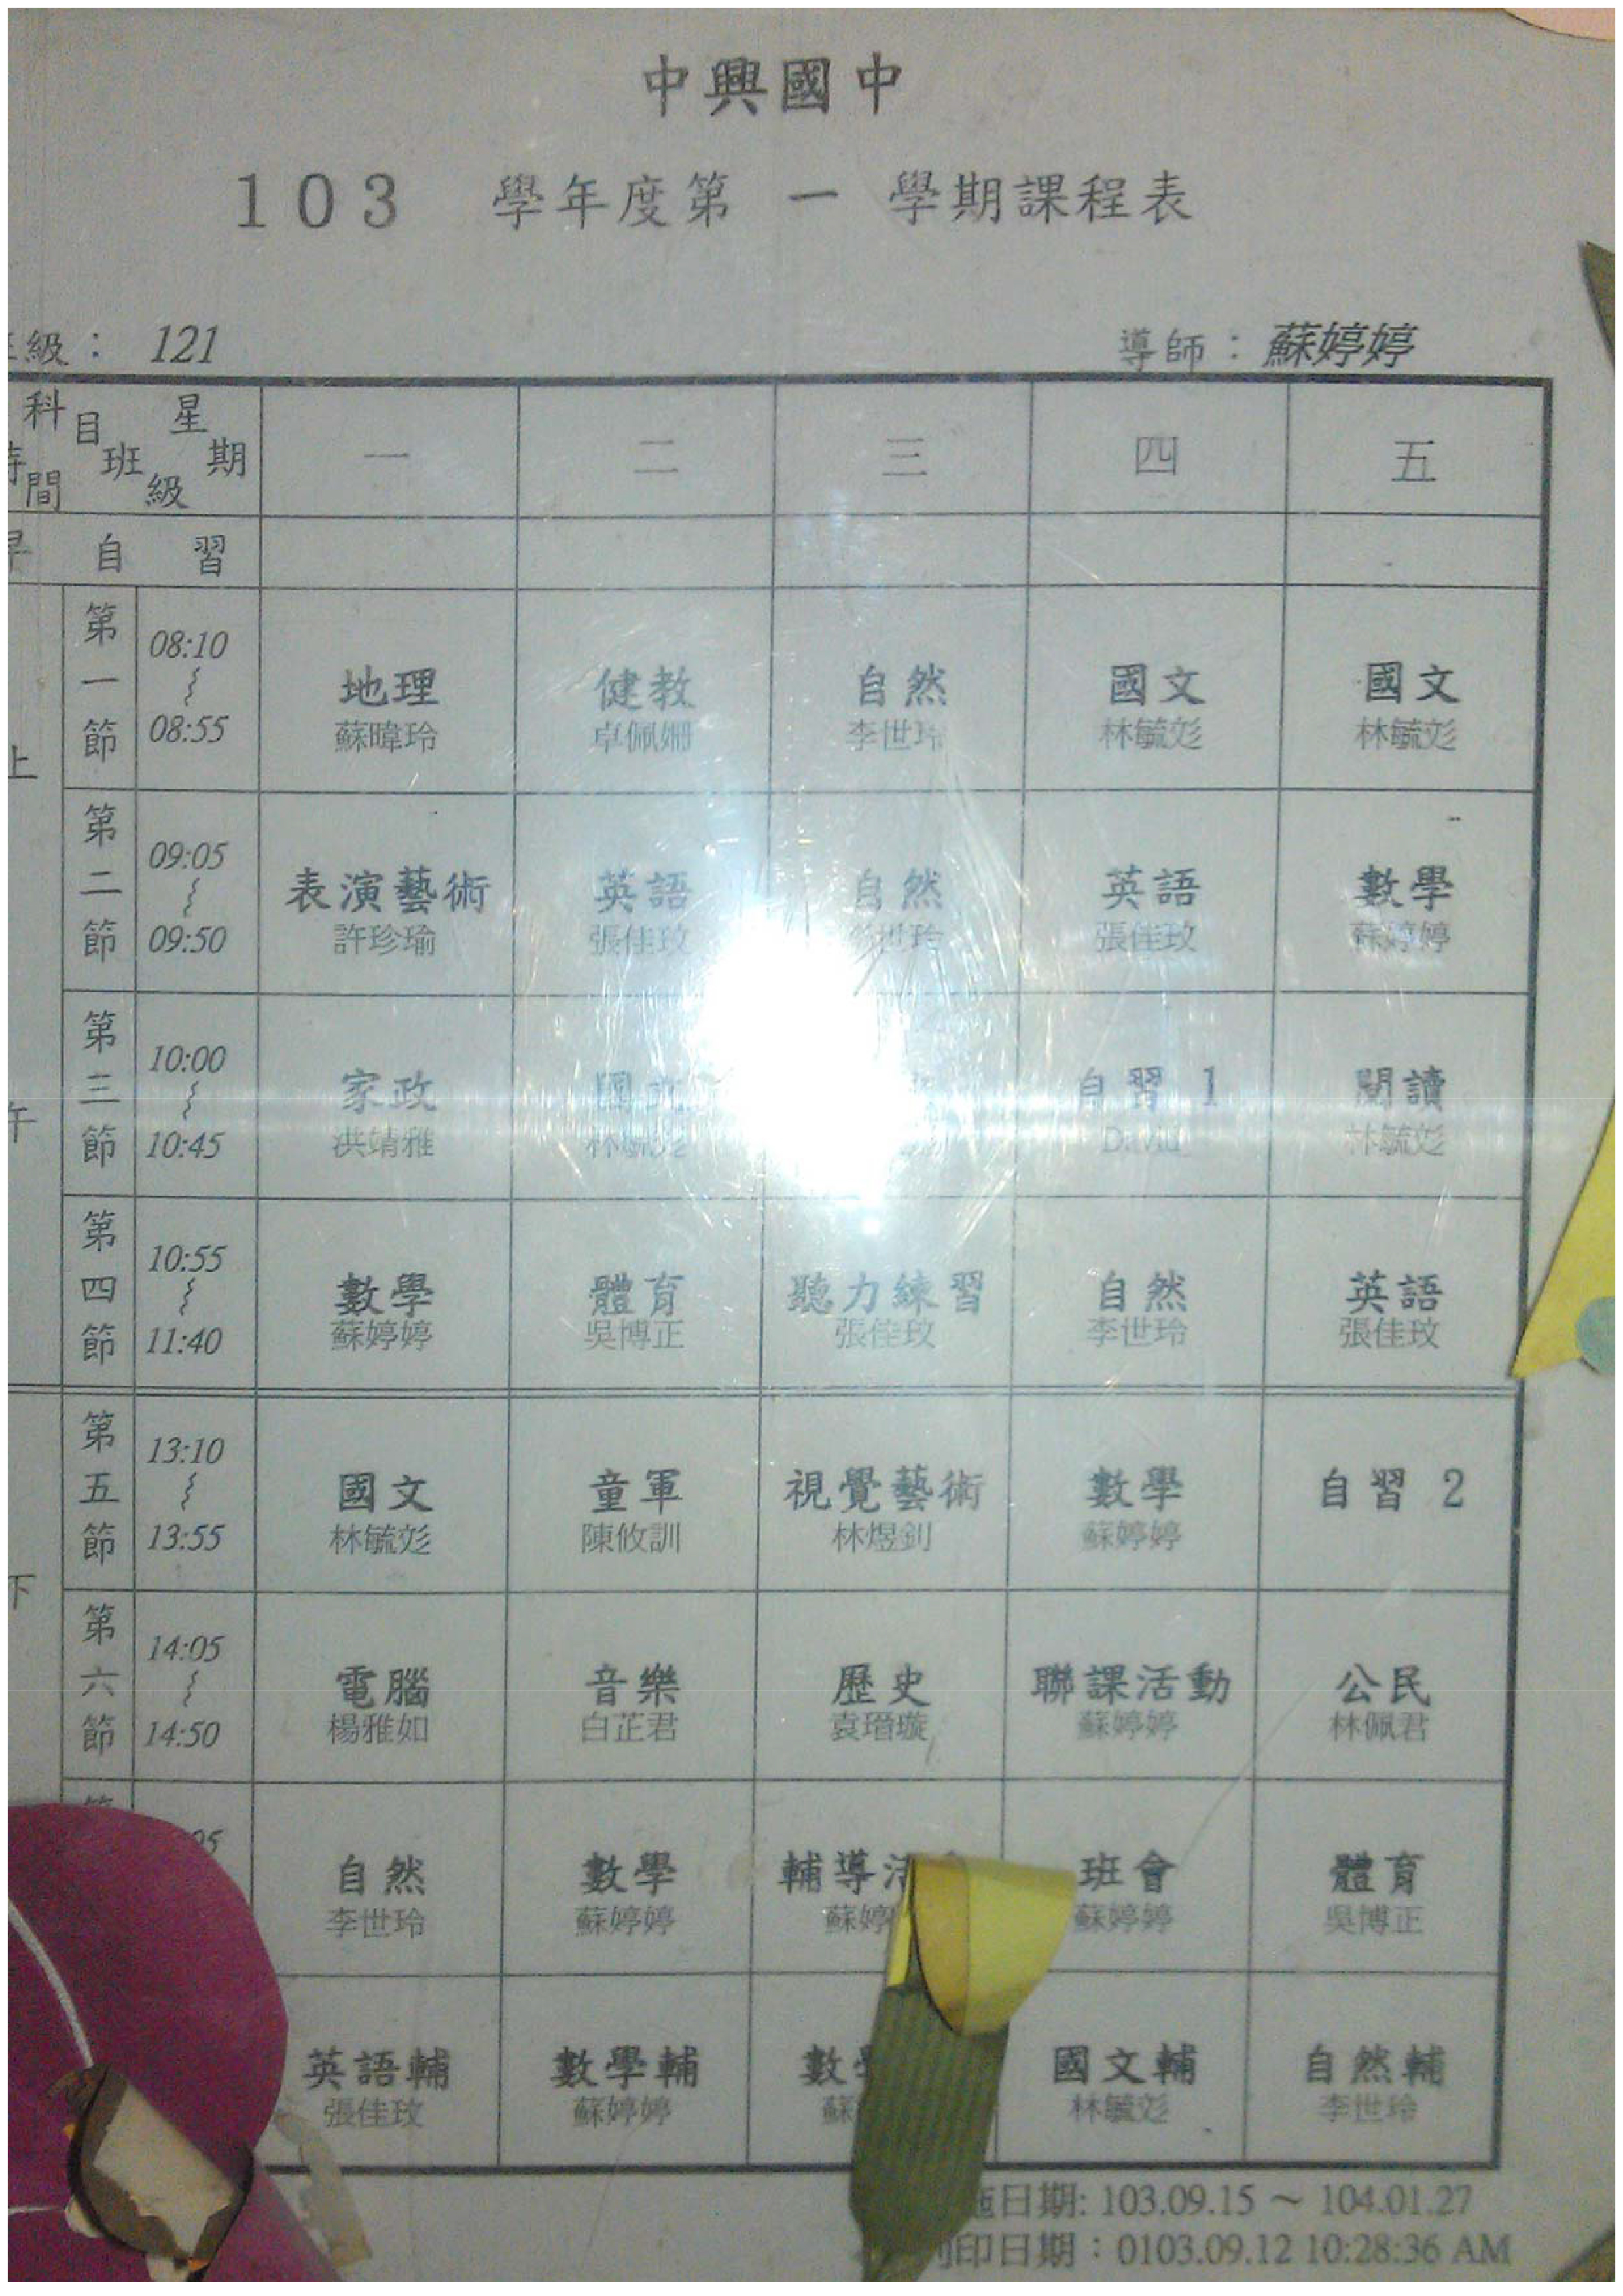 中興國中
103 學年度第 一 學期課程表
級： 121 導師：蘇婷婷
科目 星期
間 班級 一 二 三 四 五
自 習
第一節 08:10 ~ 08:55 地理 健教 自然 國文 國文
蘇暐玲 卓佩姍 李世玲 林毓彣 林毓彣
第二節 09:05 ~ 09:50 表演藝術 英語 自然 英語 數學
許珍瑜 張佳玟 世玲 張佳玟 蘇婷婷
第三節 10:00 ~ 10:45 家政 國文 自習 1 閱讀
洪靖雅 林毓彣 David 林毓彣
第四節 10:55 ~ 11:40 數學 體育 聽力練習 自然 英語
蘇婷婷 吳博正 張佳玟 李世玲 張佳玟
第五節 13:10 ~ 13:55 國文 童軍 視覺藝術 數學 自習 2
林毓彣 陳攸訓 林煜釗 蘇婷婷
第六節 14:05 ~ 14:50 電腦 音樂 歷史 聯課活動 公民
楊雅如 白芷君 袁瑨璇 蘇婷婷 林佩君
自然 數學 輔導活 班會 體育
李世玲 蘇婷婷 蘇婷 蘇婷婷 吳博正
英語輔 數學輔 數學 國文輔 自然輔
張佳玟 蘇婷婷 蘇 林毓彣 李世玲
日期: 103.09.15 ～ 104.01.27
印日期：0103.09.12 10:28:36 AM